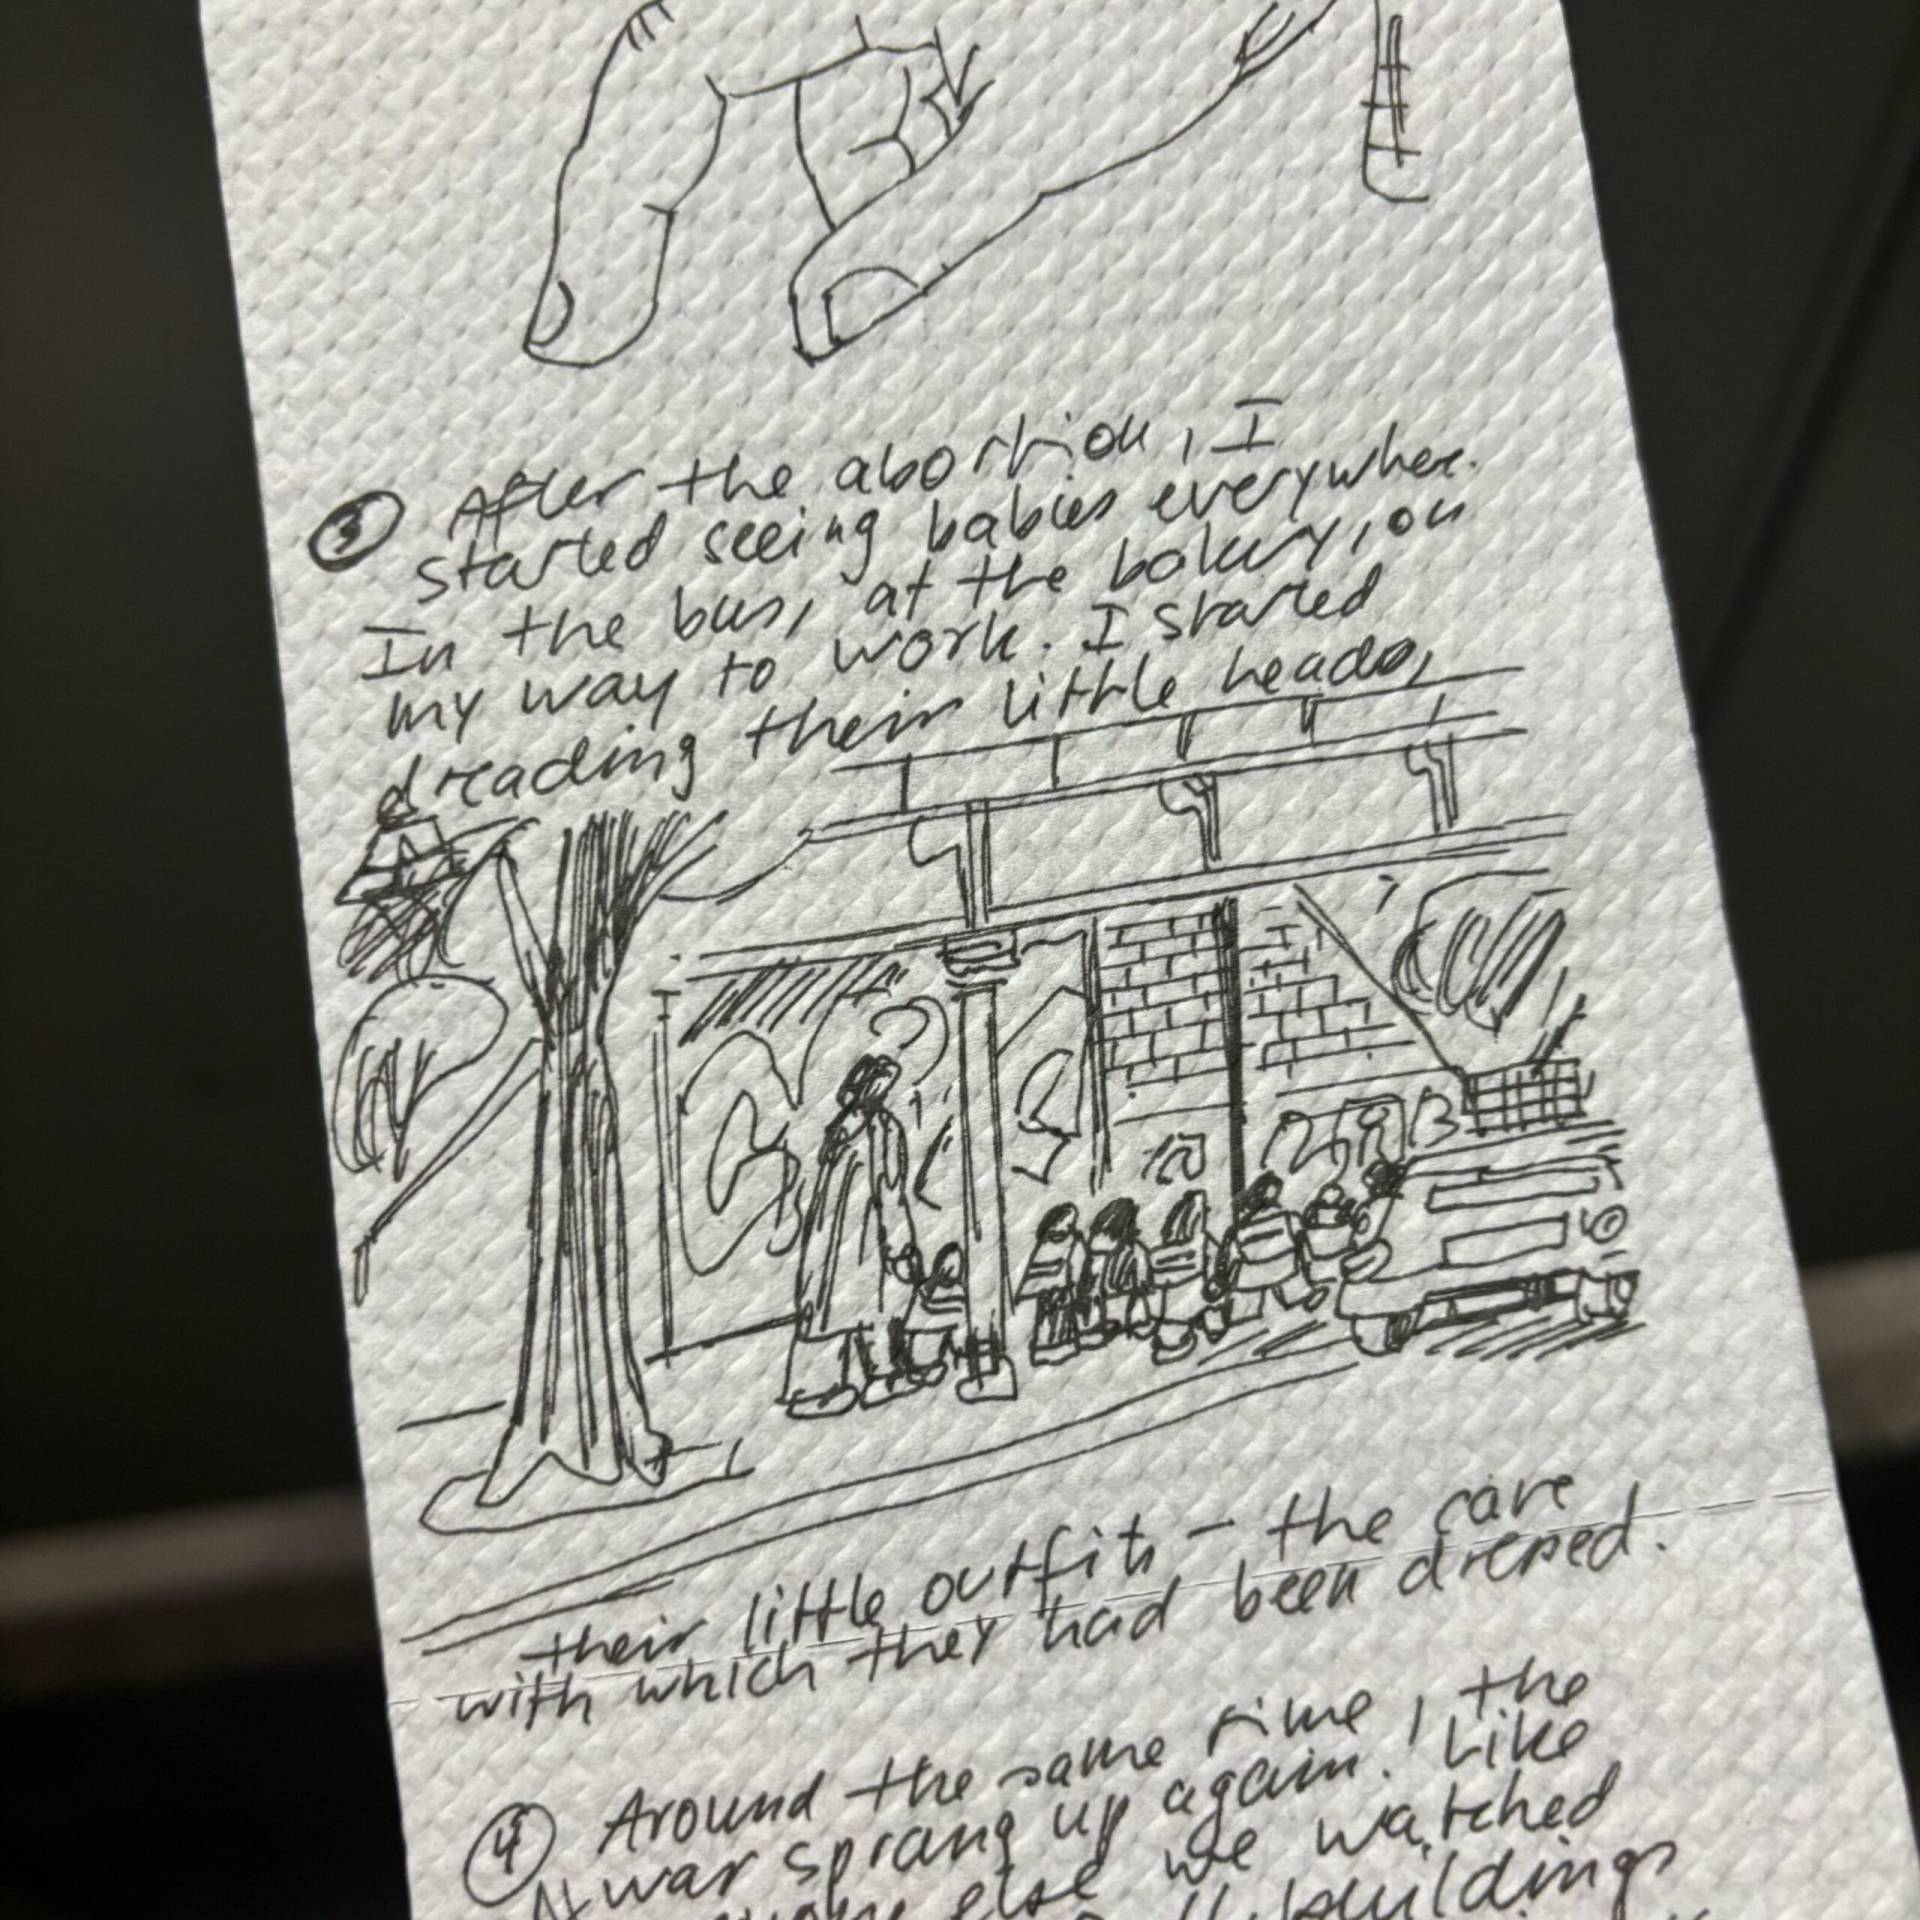 3 After the abortion, I
started seeing babies everywhere.
In the bus, at the bakery, on
my way to work. I started
dreading their little heads,
their little outfits – the care
with which they had been dressed.
4 Around the same time, the
war sprang up again. Like
else we watched
buildings